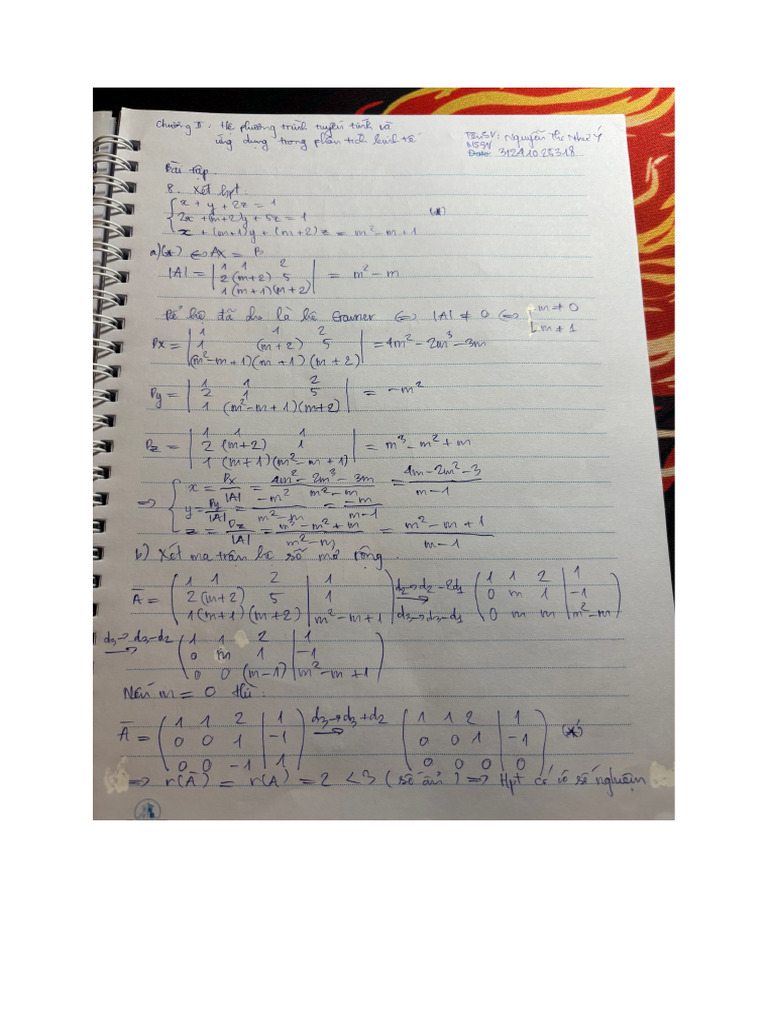 Chương II. Hệ phương trình tuyến tính và
ứng dụng trong phân tích kinh tế
Tên SV: Nguyễn Thị Như Ý
MSSV
Date: 31241025318
Bài tập.
8. Xét hpt:
{ x + y + 2z = 1
2x + (m+2)y + 5z = 1 (*)
x + (m+1)y + (m+2)z = m² - m + 1
a) (*) ⇔ AX = B
|A| = | 1 1 2
2 (m+2) 5
1 (m+1) (m+2) | = m² - m
Để hệ đã cho là hệ Cramer ⇔ |A| ≠ 0 ⇔ [ m ≠ 0
m ≠ 1
Dx = | 1 1 2
1 (m+2) 5
(m²-m+1) (m+1) (m+2) | = 4m² - 2m³ - 3m
Dy = | 1 1 2
2 1 5
1 (m²-m+1) (m+2) | = -m²
Dz = | 1 1 1
2 (m+2) 1
1 (m+1) (m²-m+1) | = m³ - m² + m
⇒ { x = Dx/|A| = (4m² - 2m³ - 3m)/(m² - m) = (4m - 2m² - 3)/(m - 1)
y = Dy/|A| = -m²/(m² - m) = -m/(m - 1)
z = Dz/|A| = (m³ - m² + m)/(m² - m) = (m² - m + 1)/(m - 1)
b) Xét ma trận hệ số mở rộng.
Ā = ( 1 1 2 | 1
2 (m+2) 5 | 1
1 (m+1) (m+2) | m²-m+1 ) d2→d2-2d1 d3→d3-d1 ( 1 1 2 | 1
0 m 1 | -1
0 m m | m²-m )
d3→d3-d2 ( 1 1 2 | 1
0 m 1 | -1
0 0 (m-1) | m²-m+1 )
Nếu m = 0 thì:
Ā = ( 1 1 2 | 1
0 0 1 | -1
0 0 -1 | 1 ) d3→d3+d2 ( 1 1 2 | 1
0 0 1 | -1
0 0 0 | 0 ) (*')
⇒ r(Ā) = r(A) = 2 < 3 (số ẩn) ⇒ Hpt có vô số nghiệm